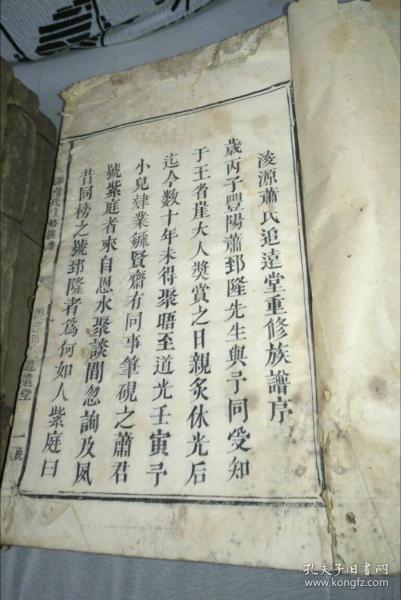 浚源蕭氏追遠堂重修族譜序
歲丙子豐陽蕭郅隆先生與予同受知
于王省崖大人獎賞之日親炙休光后
迄今数十年未得聚晤至道光壬寅予
小兒肄業毓賢齋有同事筆硯之蕭君
號紫庭者來自恩水聚談間忽詢及夙
昔同榜之號郅隆者爲何如人紫庭曰
追遠堂
孔夫子旧书网
https://www.kongfz.com